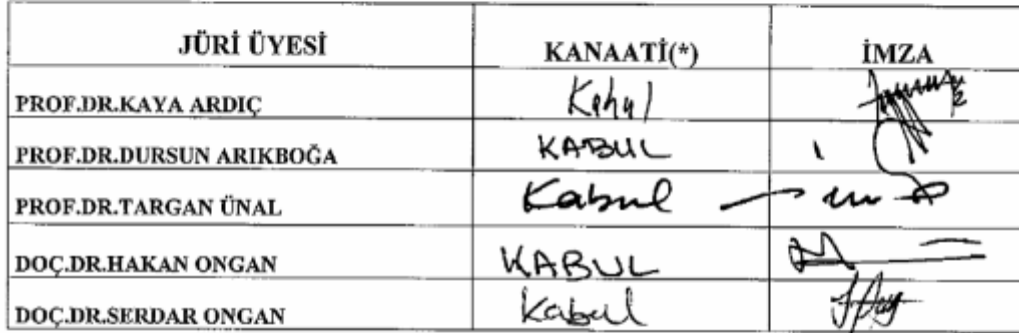 JÜRİ ÜYESİ KANAATİ(*) İMZA
PROF.DR.KAYA ARDIÇ Kabul
PROF.DR.DURSUN ARIKBOĞA KABUL
PROF.DR.TARGAN ÜNAL Kabul
DOÇ.DR.HAKAN ONGAN KABUL
DOÇ.DR.SERDAR ONGAN Kabul